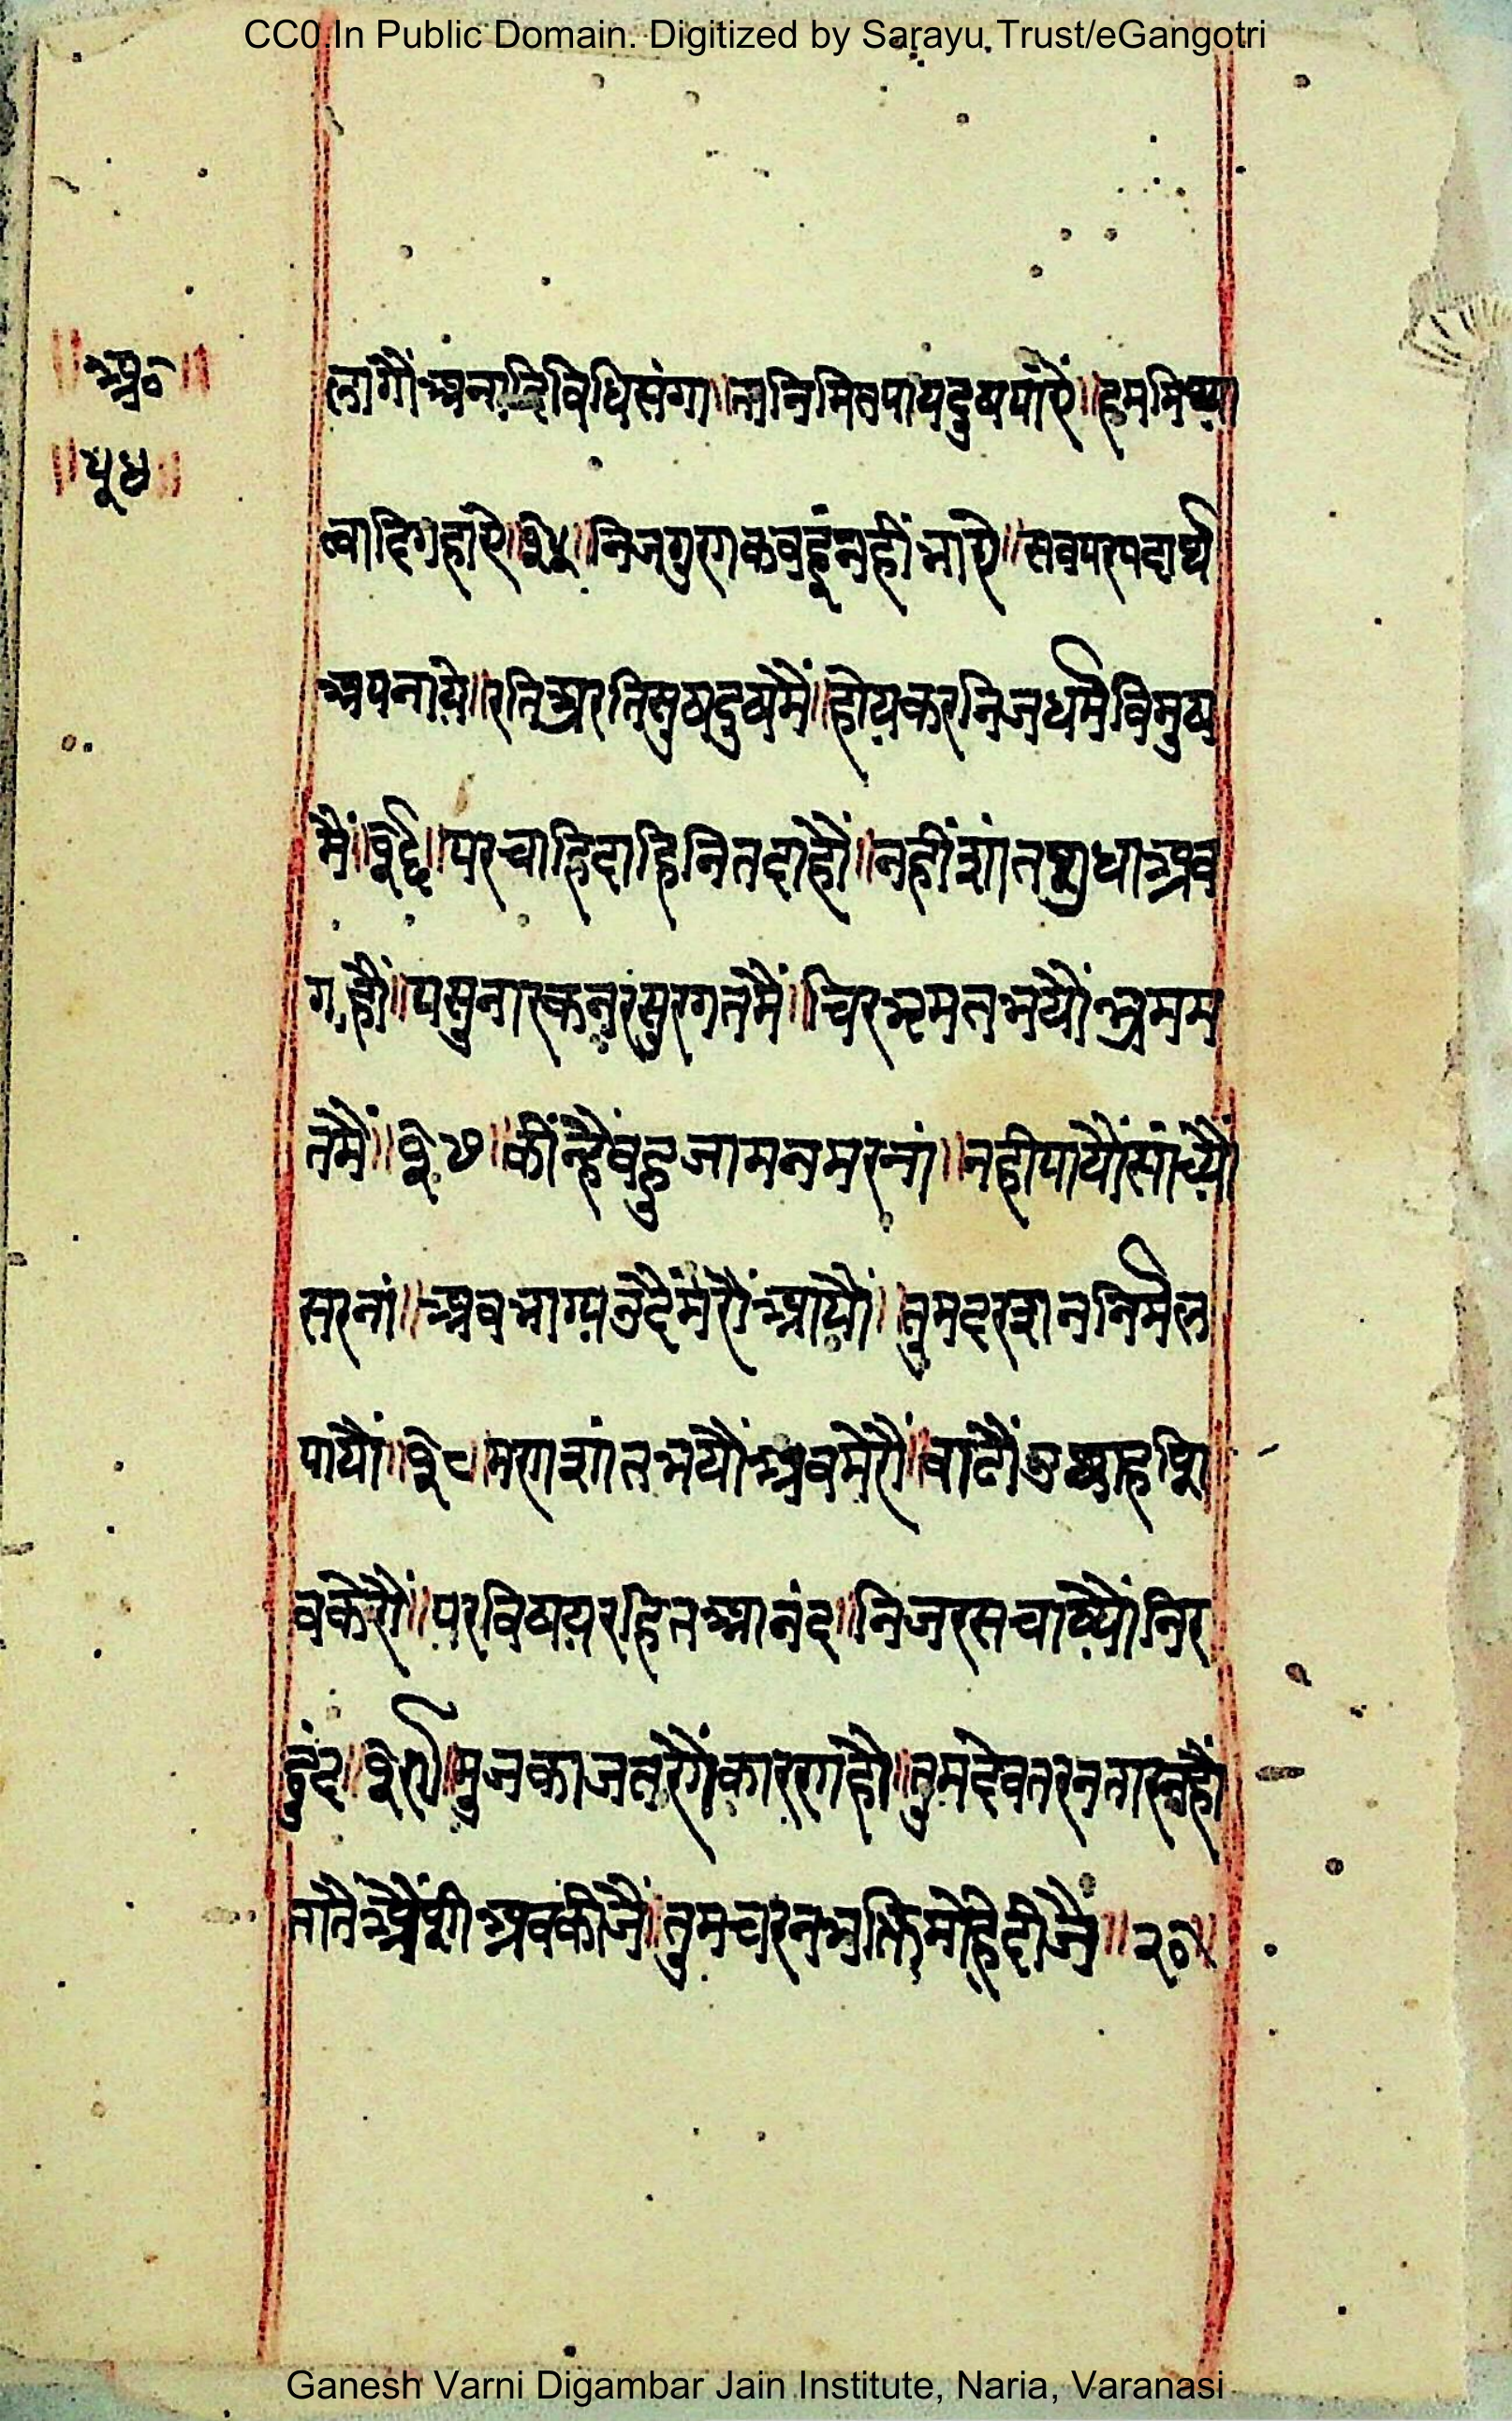 CC0.In Public Domain. Digitized by Sarayu Trust/eGangotri
॥श्रु०॥
॥पु४॥
लागौं अनादिविधिसंगा॥ता निमितपायदुषपाऐं॥हममिथ्या
त्वादिगहाऐ॥१५॥निजगुणकवहूंनहींभाऐ॥सवपरपदार्थ
अपनाये॥रतिअरतिसुषदुषमैं॥होयकरनिजधर्मविमुष
मैं॥१६॥परचाहिदाहिनितदाहौं॥नहींशांतशुधाअव
गाहौं॥पसुनारकनरसुरगतमैं॥चिरभ्रमतभयौंभ्रमम
तमैं॥१७॥कींन्हैंवहुजामनमरनां॥नहीपायौंसांच्यौं
सरनां॥अवभाग्यउदैंमेरौंआयौं॥तुमदरशननिर्मल
पायौं॥१८॥मणशांतभयौंअवमेरौं॥वाढौंउछाहशि
वकेरौं॥परविषयरहितआनंद॥निजरसचाष्यौंनिर
दुंद॥१९॥मुजकाजतणैंकारणहौ॥तुमदेवतरनतारनहौं
तातैंऔंशीअवकीजैं॥तुमचरनभक्तिमोहिदीजै॥२०॥
Ganesh Varni Digambar Jain Institute, Naria, Varanasi